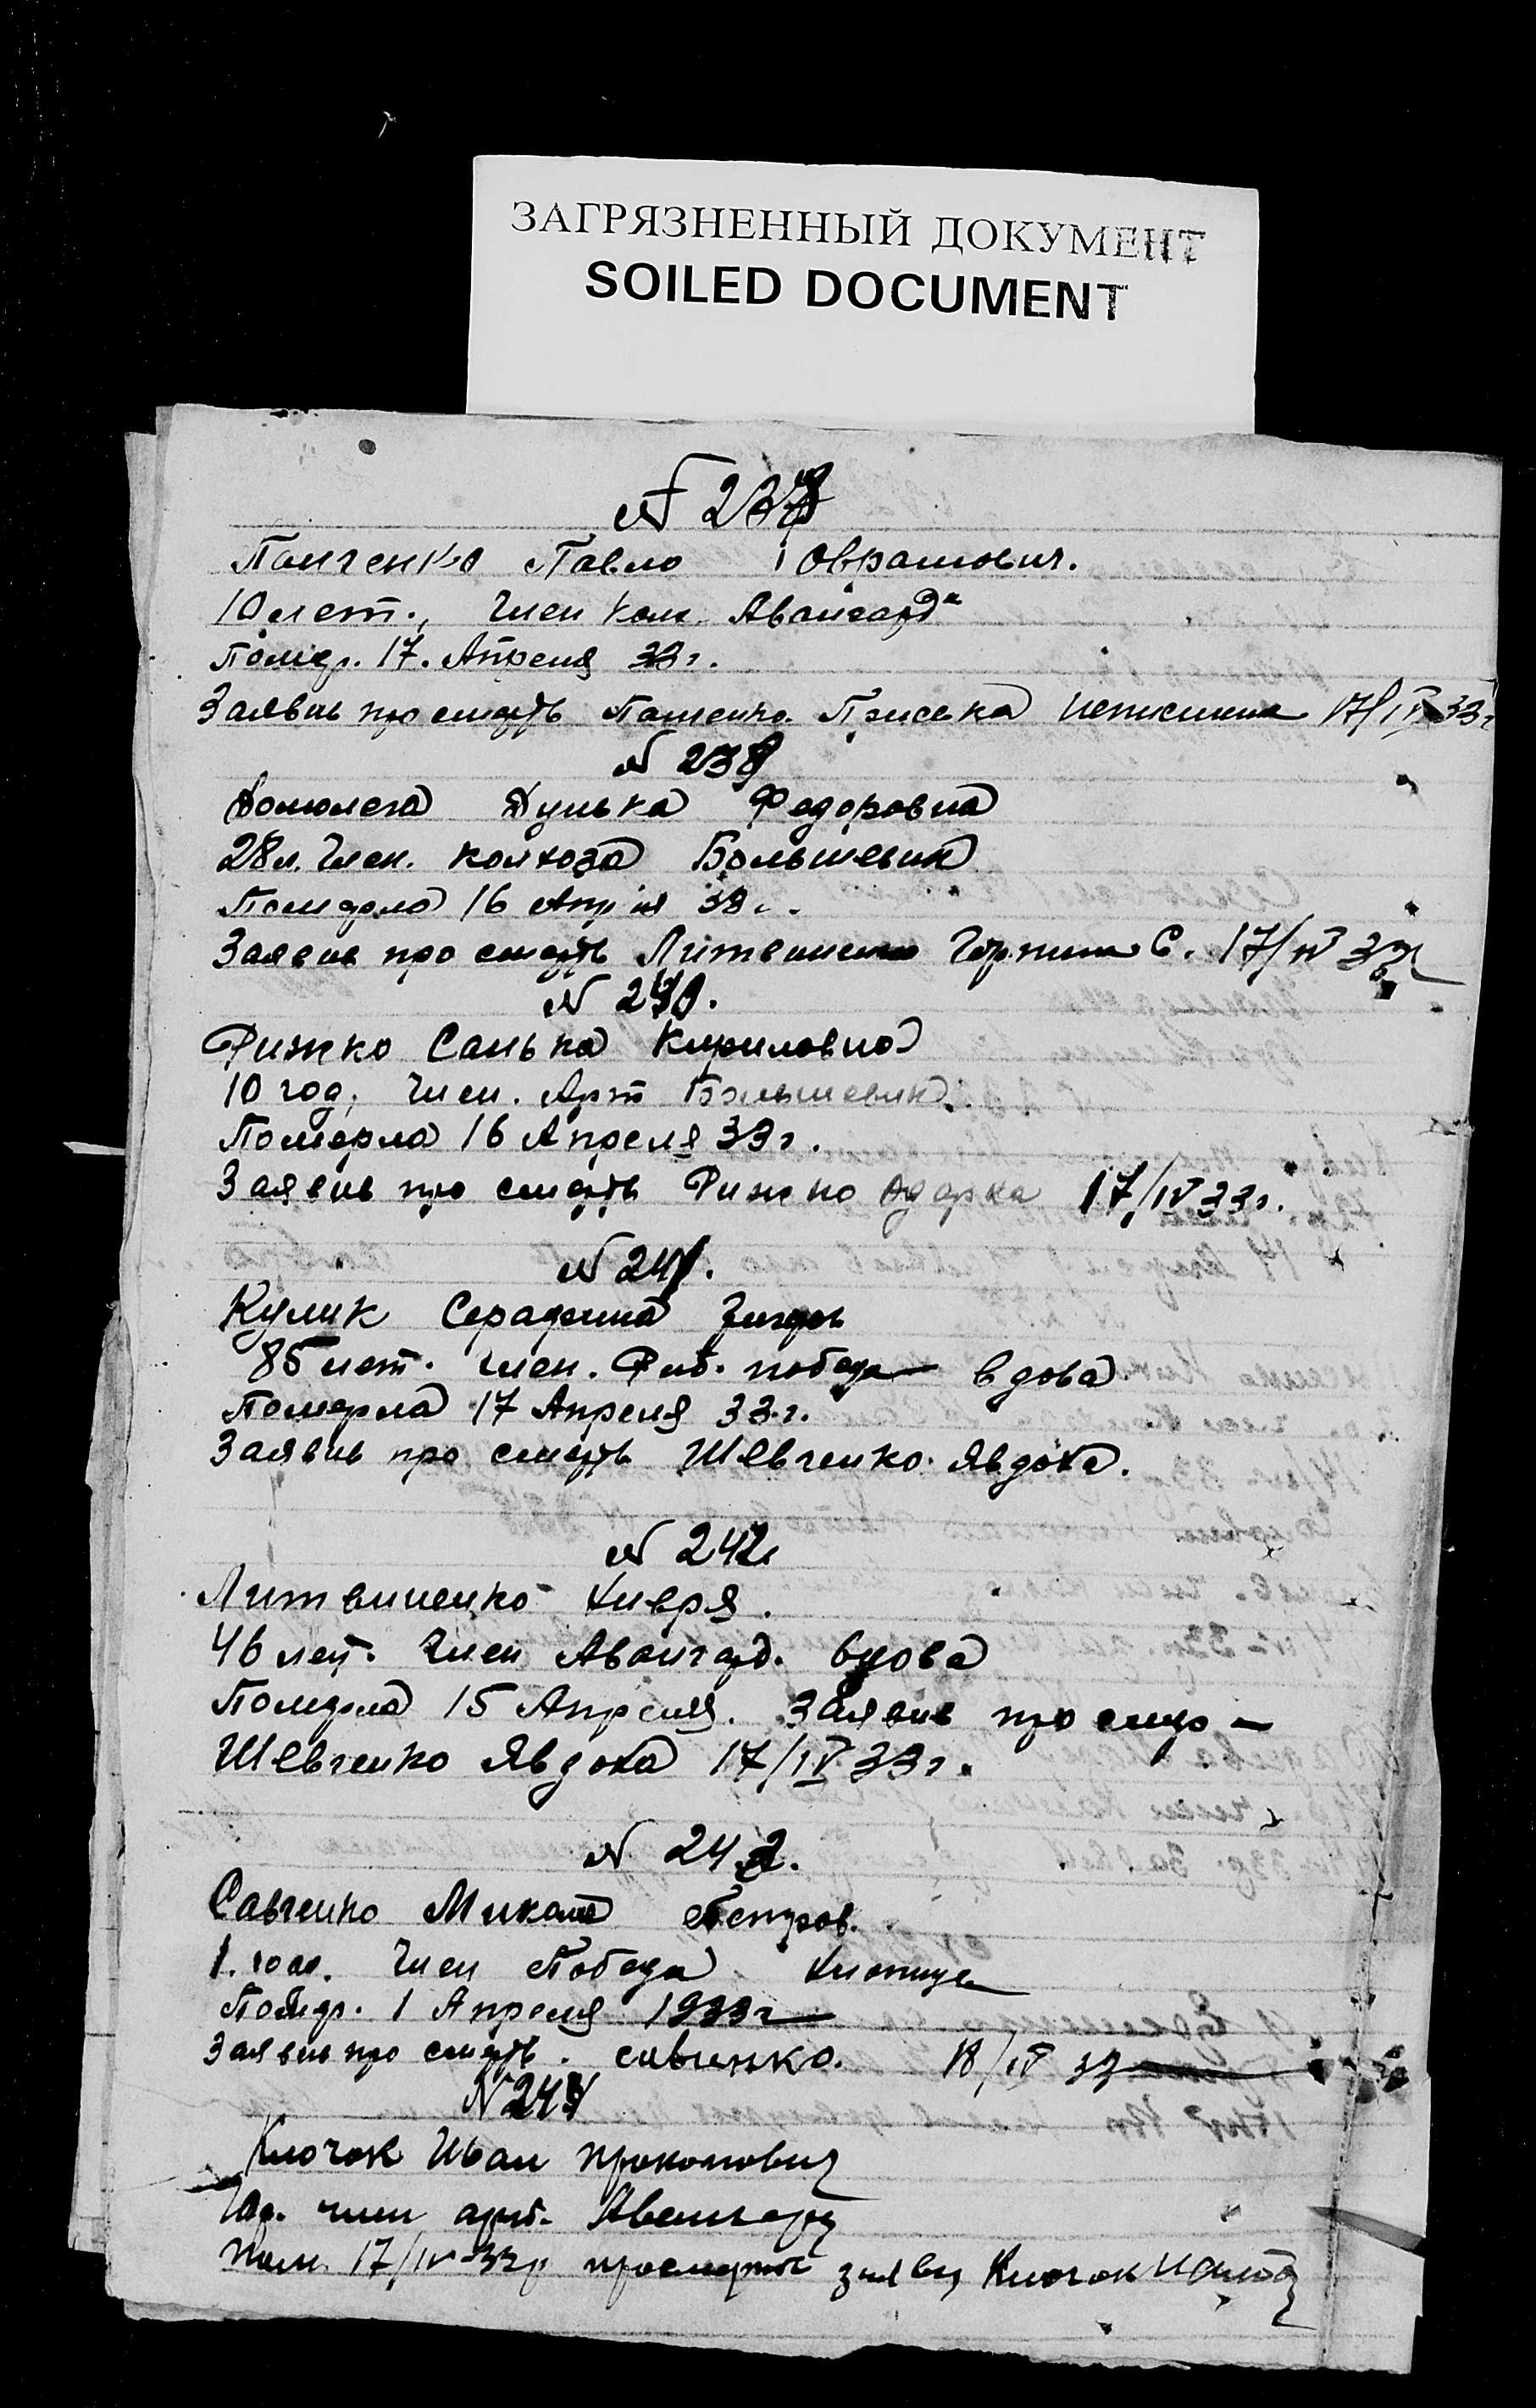 ЗАГРЯЗНЕННЫЙ ДОКУМЕНТ
SOILED DOCUMENT
№ 238
Панченко Павло Оврамович.
10 лет., член ком. Авангард"
Помер. 17. Апреля 33 г.
Заявив про смерть Приська 17/IV 33 г
№ 239
Дунька Федоровна
28 л. член. колхоза Большевик
Померла 16 33 г.
Заявив про смерть Литвиненко С. 17/IV 33
№ 240.
Рижко Санька Кириловна
10 год, член. Арт Большевик.
Померла 16 Апреля 33 г.
Заявив про смерть Рижко Одарка 17/IV 33 г.
№ 241.
Кулик
85 лет. член. победа вдова
Померла 17 Апреля 33 г.
Заявив про смерть Шевченко Явдоха.
№ 242
Литвиненко Хивря.
46 лет. член Авангард. вдова
Померла 15 Апреля. Заявив про
Шевченко Явдоха 17/IV 33 г.
№ 242.
Савченко Микола Петров.
1. член Победа хлопиц
Помер. 1 Апреля 1933 г
Заявив про смерть. 18/IV 33
№ 244
Клочок Иван Прокопович
член арт. Авангард
пом. 17/IV-33р про смерть заявив Клочок